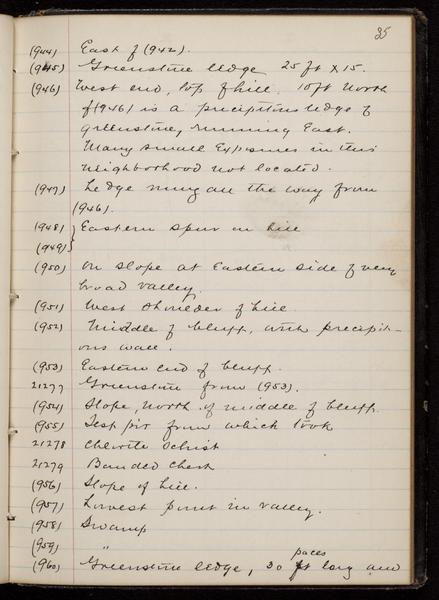 35
(944) East of (942).
(945) Greenstone ledge 25 ft X 15.
(946) West end, top of hill. 10 ft North
of (946) is a precipitous ledge of
greenstone, running East.
Many small exposures in this
neighborhood not located.
(947) Ledge runs all the way from
(946).
(948) } Eastern spur on hill
(949)
(950) On slope at Eastern side of very
broad valley.
(951) West shoulder of hill.
(952) Middle of bluff, with precipit-
ous wall.
(953) Eastern end of bluff.
21277 Greenstone from (953).
(954) Slope, North of middle of bluff.
(955) Test pit from which took
21278 Chlorite Schist
21279 Banded Chert
(956) Slope of hill.
(957) Lowest point in valley.
(958) Swamp
(959) "
paces
(960) Greenstone ledge, 30 ft long and